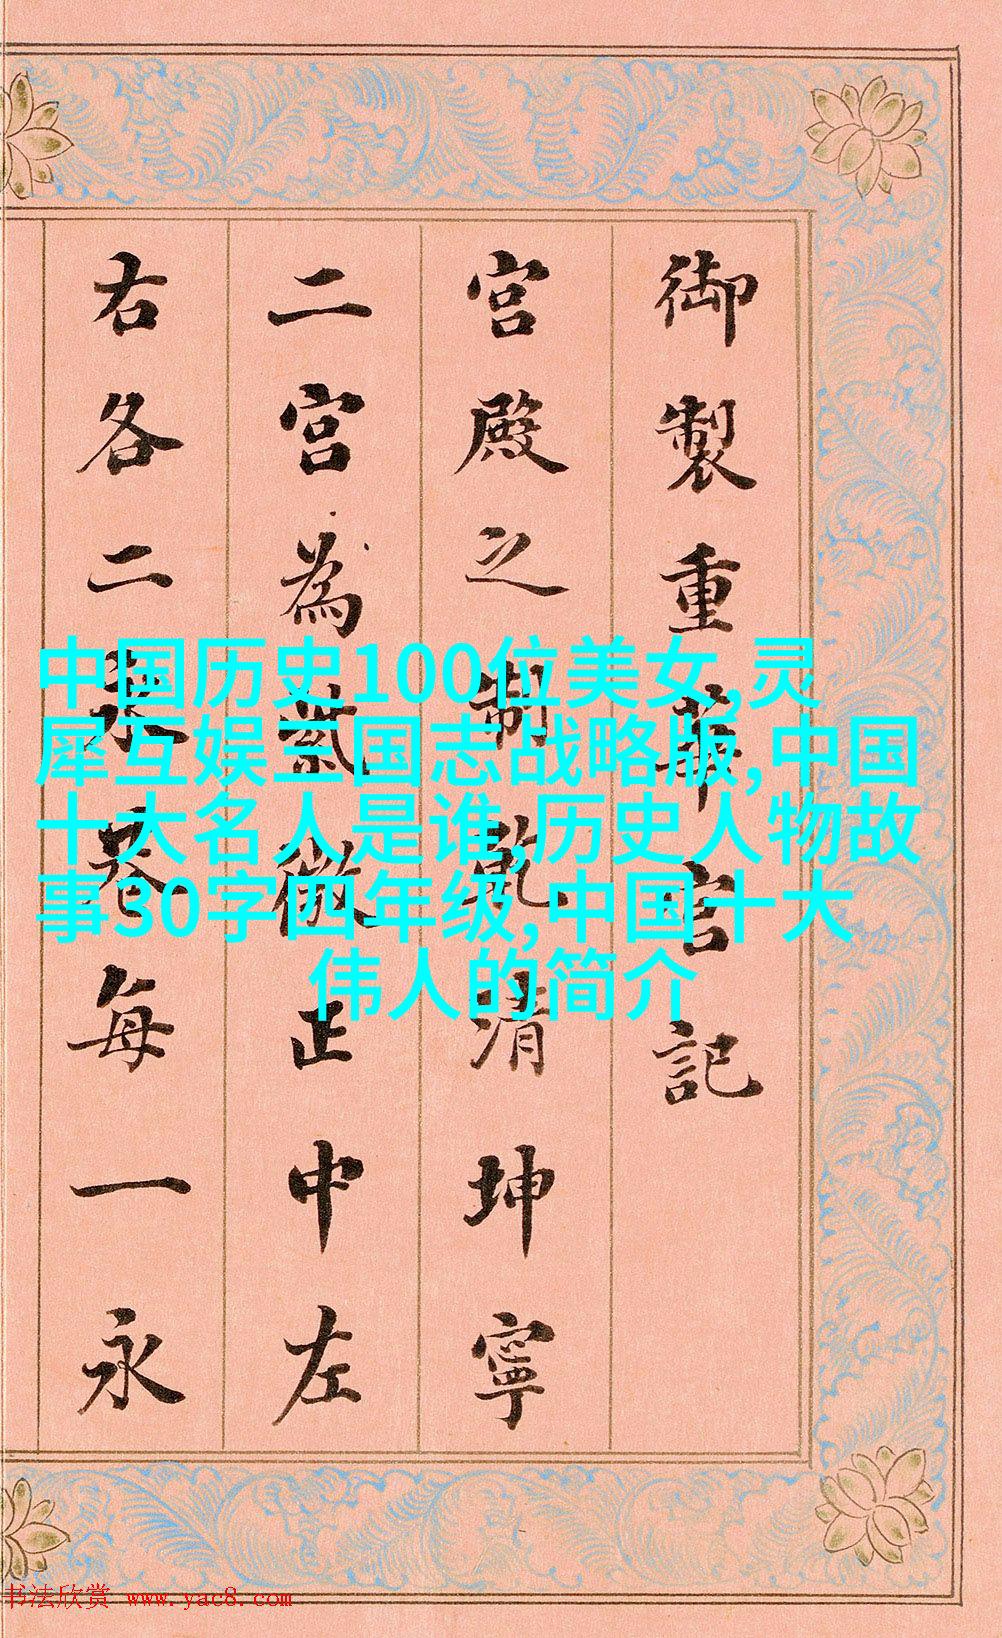 御製重華宮記
宮殿之制乾清坤寧
二宮為紫微正中左
右各二永巷每一永
中国历史100位美女,灵
犀互娱三国志战略版,中国
十大名人是谁,历史人物故
事30字四年级,中国十大
伟人的简介
书法欣赏 www.yac8.com